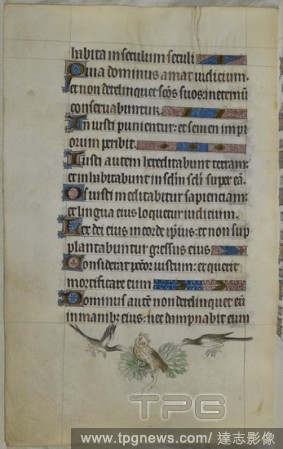 habita in seculum seculi
Quia dominus amat iudicium.
et non derelinquet scos suos: in eternū
conservabuntur.
Iniusti punientur: et semen impi
orum peribit.
Iusti autem hereditabunt terram:
et inhabitabunt in sclm scli super eā.
Os iusti meditabitur sapienciam:
et lingua eius loquetur iudicium.
Lex dei eius in corde ipsius: et non sup
plantabuntur gressus eius
Considerat pctor iustum: et querit
mortificare eum
Dominus autē non derelinquet eū
in manibꝫ eius: nec dampnabit eum
TPG
www.tpgnews.com/ 達志影像